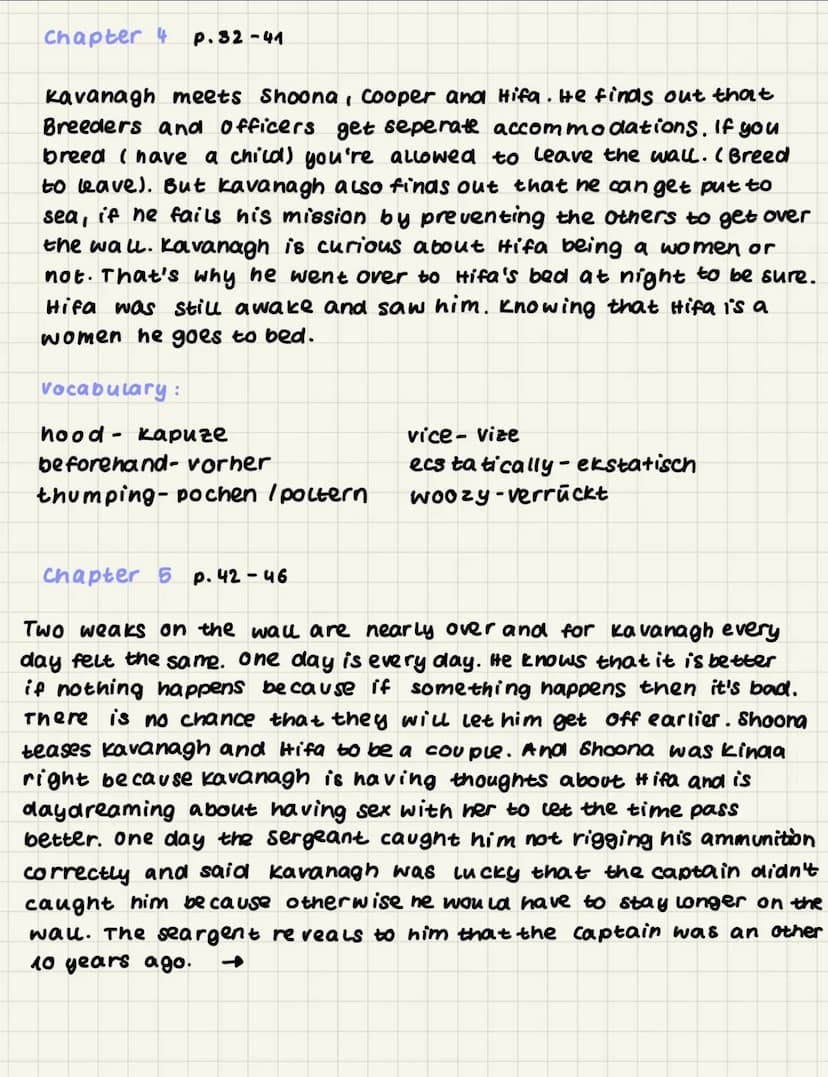 Chapter 4 p.32-41
Kavanagh meets Shoona, Cooper and Hifa. He finds out that
Breeders and officers get seperate accommodations. If you
breed (have a child) you're allowed to leave the wall. (Breed
to leave). But Kavanagh also finds out that he can get put to
sea, if he fails his mission by preventing the others to get over
the wall. Kavanagh is curious about Hifa being a women or
not. That's why he went over to Hifa's bed at night to be sure.
Hifa was still awake and saw him. Knowing that Hifa is a
women he goes to bed.
Vocabulary:
hood - Kapuze
beforehand - vorher
thumping - pochen / poltern
vice - Vize
ecstatically - ekstatisch
woozy - verrückt
Chapter 5 p.42-46
Two weaks on the wall are nearly over and for Kavanagh every
day felt the same. One day is every day. He knows that it is better
if nothing happens because if something happens then it's bad.
There is no chance that they will let him get off earlier. Shoona
teases Kavanagh and Hifa to be a couple. And Shoona was kinda
right because Kavanagh is having thoughts about Hifa and is
daydreaming about having sex with her to let the time pass
better. One day the Sergeant caught him not rigging his ammunition
correctly and said Kavanagh was lucky that the captain didn't
caught him because otherwise he would have to stay longer on the
wall. The seargent reveals to him that the Captain was an other
10 years ago. →